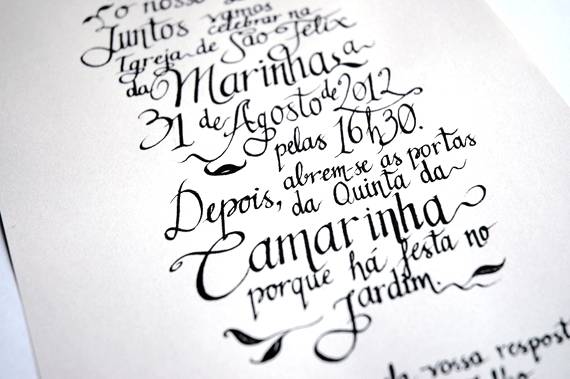 Lo nosso
Juntos vamos
celebrar na
Igreja de São Félix
da Marinha, a
31 de Agosto de 2012
pelas 16h30.
Depois, abrem-se as portas
da Quinta da
Camarinha
porque há festa no
Jardim.
vossa respost